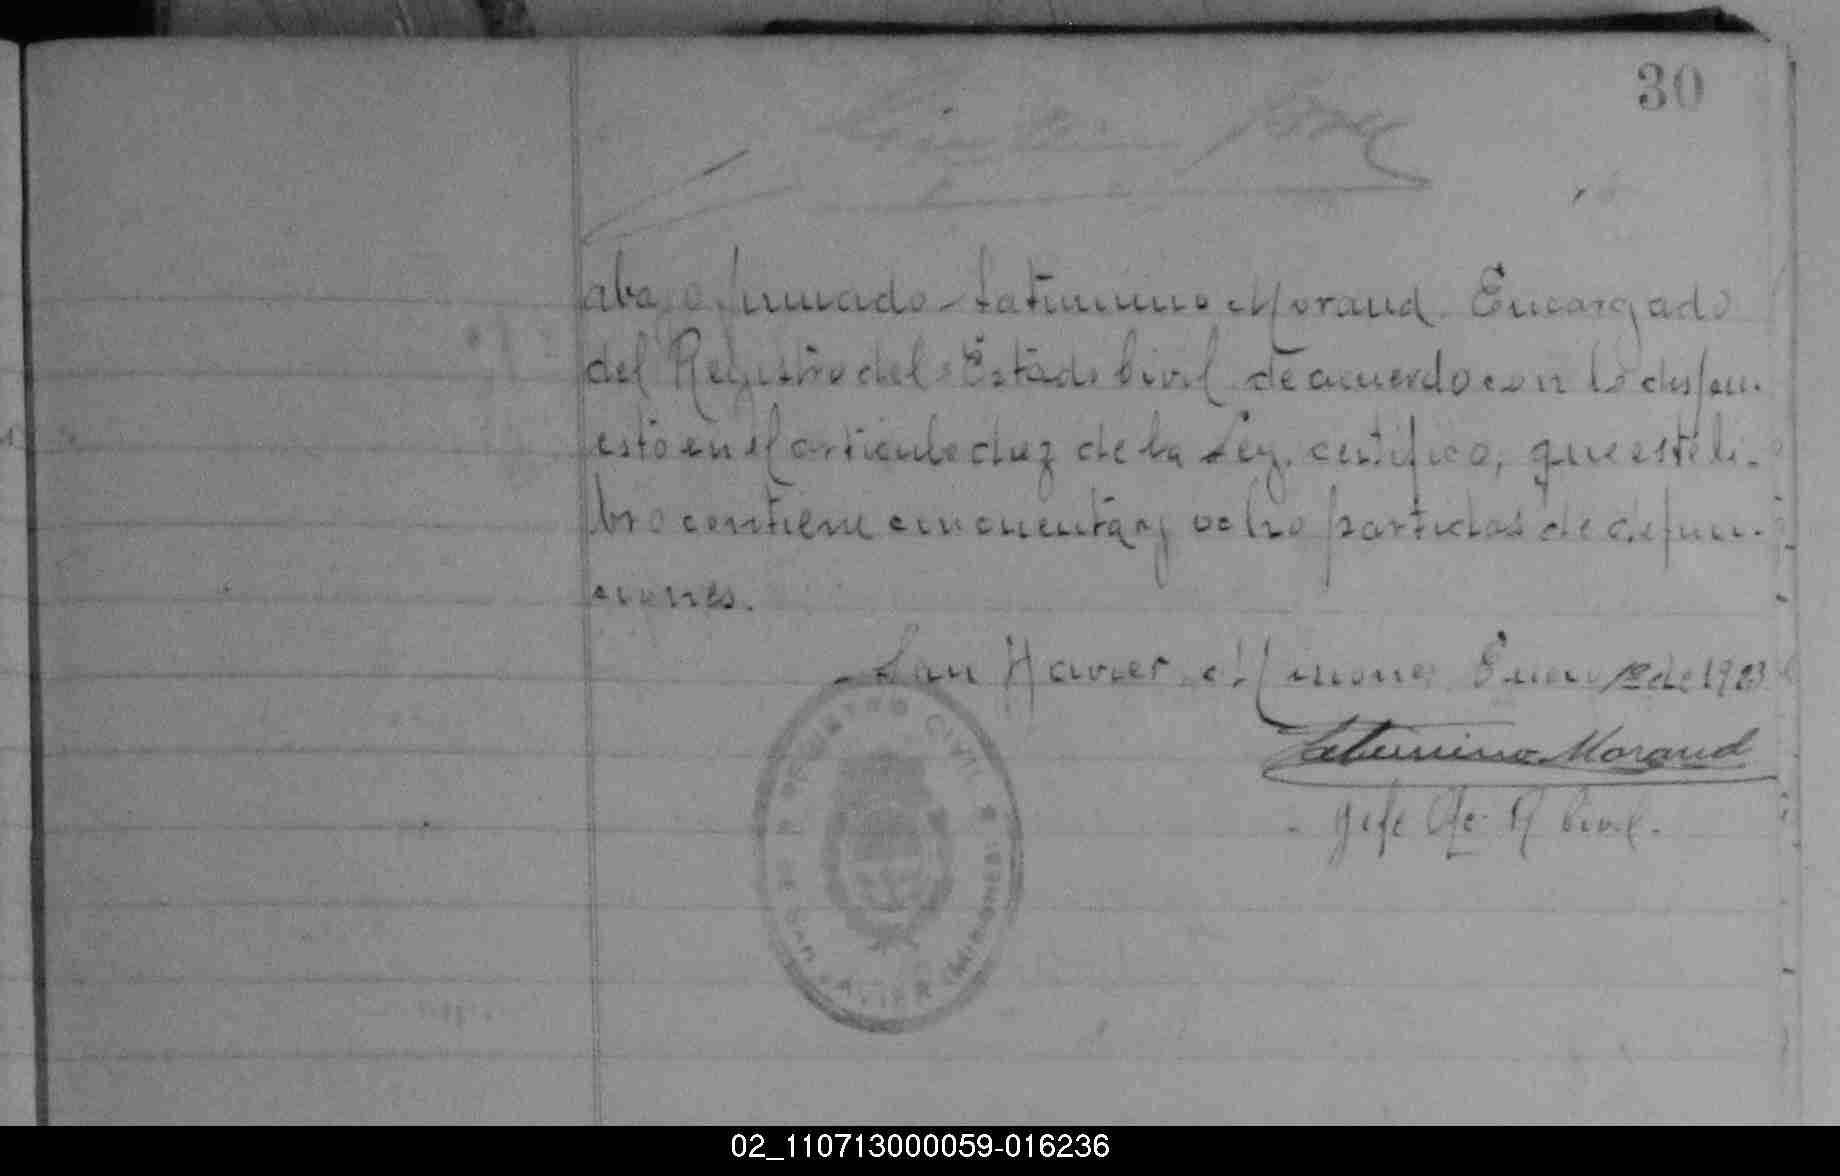 30
abajo firmado Saturnino Moraud. Encargado
del Registro del Estado Civil de acuerdo con lo dispu-
esto en el articulo diez de la Ley, certifico, que este li-
bro contiene cincuenta y ocho partidas de defun-
ciones.
San Xavier, Misiones Enero 1º de 1923
Saturnino Moraud
Gefe Of. R Civil.
REGISTRO CIVIL
DE SAN JAVIER (MISIONES)
02_110713000059-016236